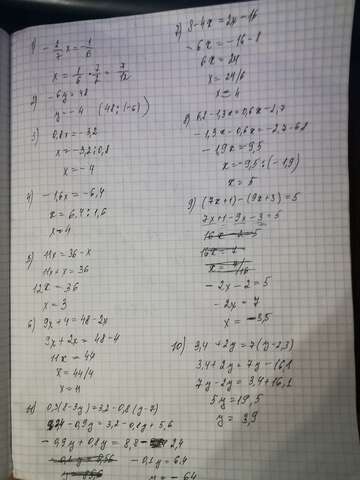 1) - 2/7 x = - 1/6
x = 1/6 · 7/2 = 7/12
2) -6y = 48
y = -4 (48:(-6))
3) 0,8x = -3,2
x = -3,2:0,8
x = -4
4) -1,6x = -6,4
x = 6,4:1,6
x = 4
5) 11x = 36 - x
11x + x = 36
12x = 36
x = 3
6) 9x + 4 = 48 - 2x
9x + 2x = 48 - 4
11x = 44
x = 44/4
x = 11
7) 8 - 4x = 2x - 16
-6x = -16 - 8
6x = 24
x = 24/6
x = 4
8) 6,8 - 1,3x = 0,6x - 2,7
-1,3x - 0,6x = -2,7 - 6,8
-1,9x = 9,5
x = -9,5:(-1,9)
x = 5
9) (7x+1) - (9x+3) = 5
7x + 1 - 9x - 3 = 5
-2x - 2 = 5
-2x = 7
x = -3,5
10) 3,4 + 2y = 7(y - 2,3)
3,4 + 2y = 7y - 16,1
7y - 2y = 3,4 + 16,1
5y = 19,5
y = 3,9
11) 0,3(8 - 3y) = 3,2 - 0,8(y - 7)
2,4 - 0,9y = 3,2 - 0,8y + 5,6
-0,9y + 0,8y = 8,8 - 2,4
-0,1y = 6,4
y = -64